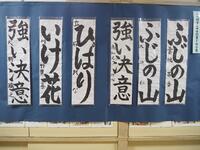 ふじの山
ふじの山
強い決意
ひばり
いけ花
強い決意